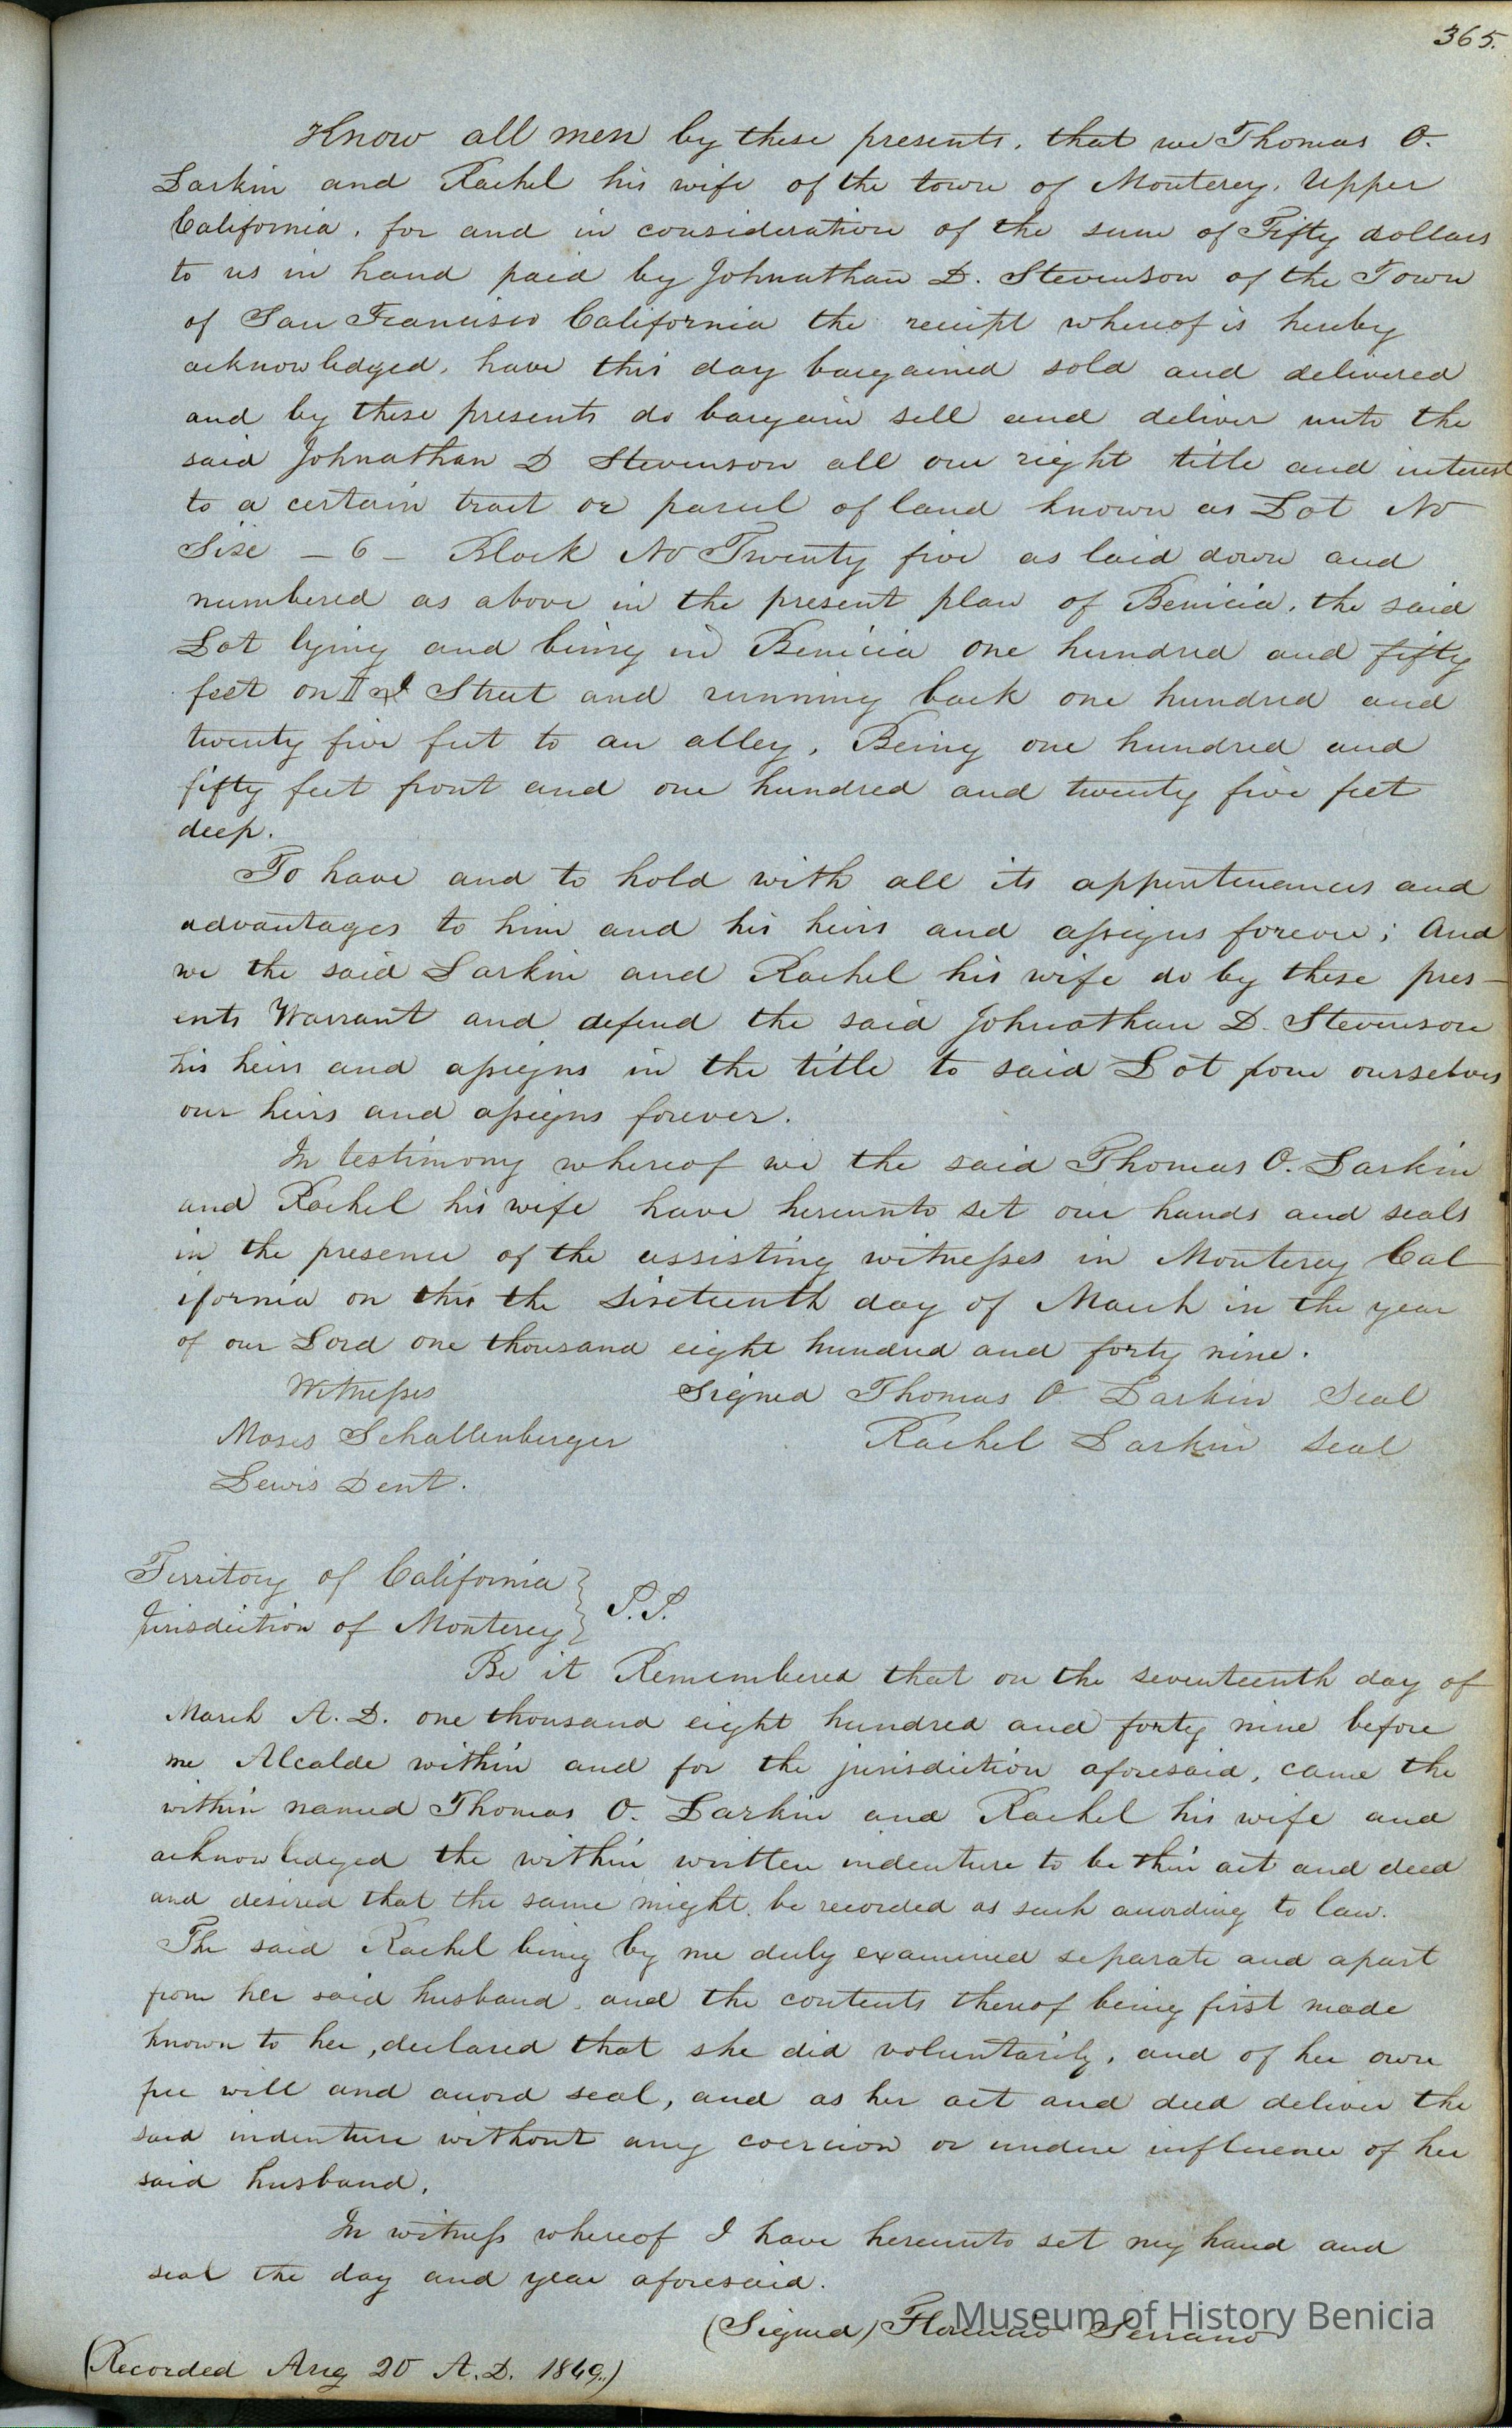 365.
Know all men by these presents, that we Thomas O.
Larkin and Rachel his wife of the town of Monterey, Upper
California, for and in consideration of the sum of Fifty dollars
to us in hand paid by Johnathan D. Stevenson of the Town
of San Francisco California the receipt whereof is hereby
acknowledged, have this day bargained sold and delivered
and by these presents do bargain sell and deliver unto the
said Johnathan D Stevenson all our right title and interest
to a certain tract or parcel of land known as Lot No
Six – 6 – Block No Twenty five as laid down and
numbered as above in the present plan of Benicia, the said
Lot lying and being in Benicia one hundred and fifty
feet on I Street and running back one hundred and
twenty five feet to an alley, Being one hundred and
fifty feet front and one hundred and twenty five feet
deep.
To have and to hold with all its appurtenances and
advantages to him and his heirs and assigns forever; And
we the said Larkin and Rachel his wife do by these pres-
ents Warrant and defend the said Johnathan D. Stevenson
his heirs and assigns in the title to said Lot from ourselves
our heirs and assigns forever.
In testimony whereof we the said Thomas O. Larkin
and Rachel his wife have hereunto set our hands and seals
in the presence of the assisting witnesses in Monterey Cal
ifornia on this the Sixteenth day of March in the year
of our Lord one thousand eight hundred and forty nine.
Witnesses Signed Thomas O. Larkin Seal
Moses Schallenberger Rachel Larkin Seal
Lewis Dent.
Territory of California } S.S.
Jurisdiction of Monterey }
Be it Remembered that on the seventeenth day of
March A.D. one thousand eight hundred and forty nine before
me Alcalde within and for the jurisdiction aforesaid, came the
within named Thomas O. Larkin and Rachel his wife and
acknowledged the within written indenture to be their act and deed
and desired that the same might be recorded as such according to law.
The said Rachel being by me duly examined separate and apart
from her said husband, and the contents thereof being first made
known to her, declared that she did voluntarily, and of her own
free will and accord seal, and as her act and deed deliver the
said indenture without any coercion or undue influence of her
said husband.
In witness whereof I have hereunto set my hand and
seal the day and year aforesaid.
(Signed) Florencio Serrano
(Recorded Aug 20 A.D. 1849.)
Museum of History Benicia